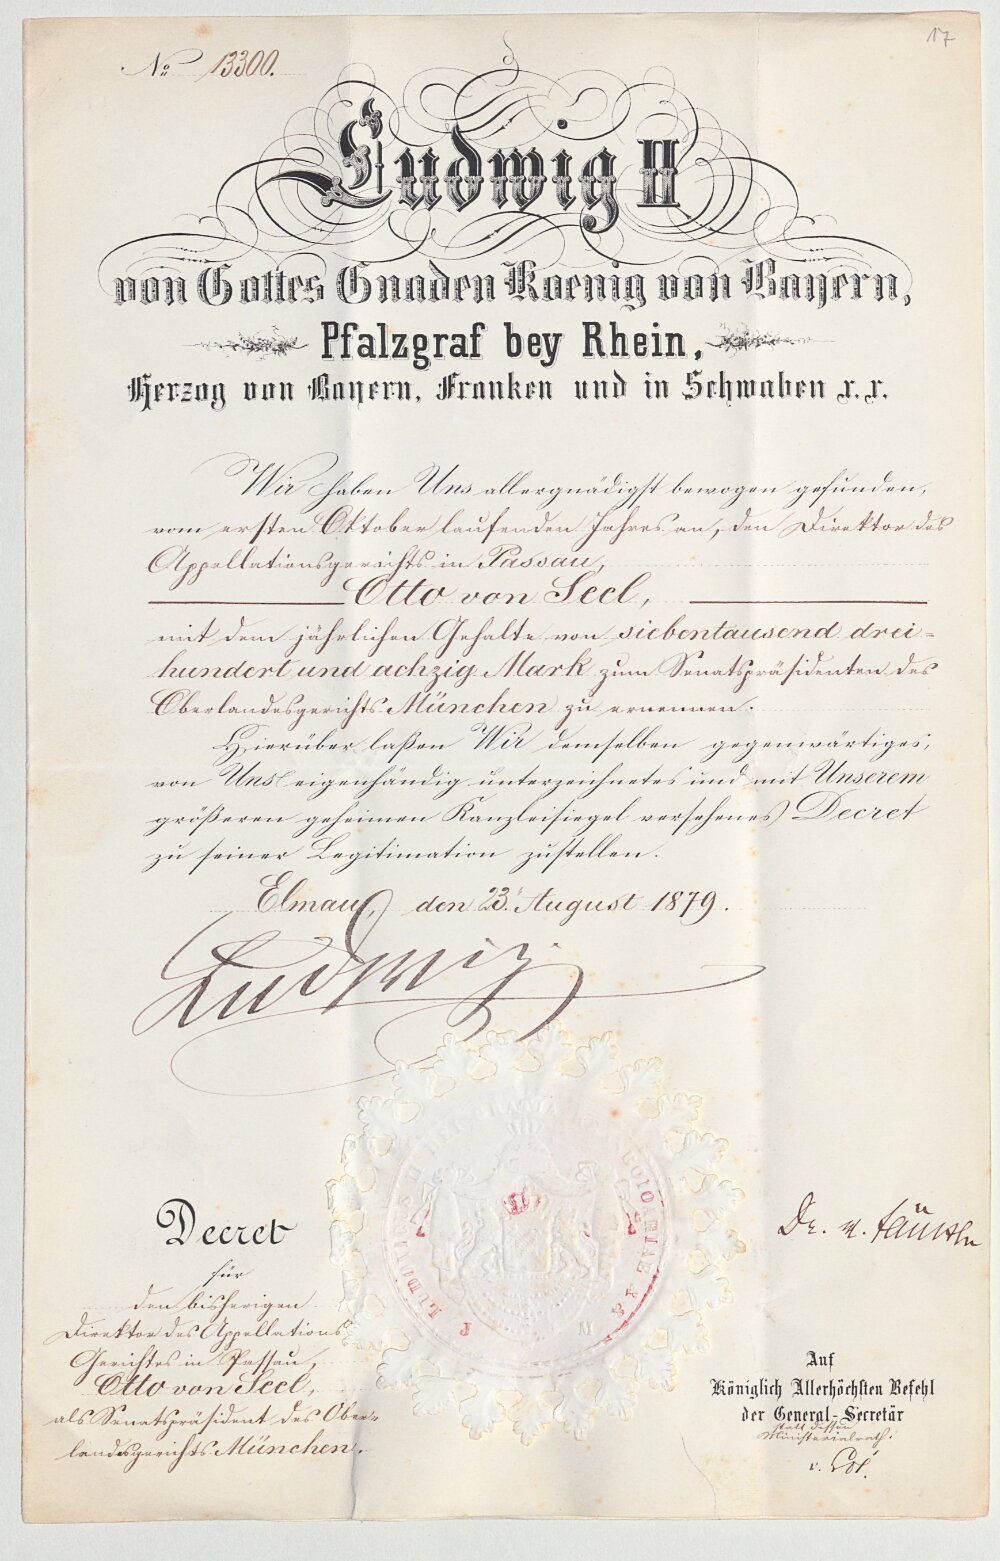 17
No 13300.
Ludwig II
von Gottes Gnaden Koenig von Bayern,
Pfalzgraf bey Rhein,
Herzog von Bayern, Franken und in Schwaben x.x.
Wir haben Uns allergnädigst bewogen gefunden,
vom ersten Oktober laufenden Jahres an, den Direktor des
Appellationsgerichts in Passau,
Otto von Seel,
mit dem jährlichen Gehalte von siebentausend drei-
hundert und achzig Mark zum Senatspräsidenten des
Oberlandesgerichts München zu ernennen.
Hierüber laßen Wir demselben gegenwärtiges,
von Uns eigenhändig unterzeichnetes und mit Unserem
größeren geheimen Kanzleisiegel versehenes Decret
zu seiner Legitimation zustellen.
Elmau, den 23. August 1879.
Ludwig
Decret
für
den bisherigen
Direktor des Appellations
Gerichtes in Passau,
Otto von Seel,
als Senatspräsident des Ober-
landesgerichts München.
Dr. v. Fäustle
Auf
Königlich Allerhöchsten Befehl
der General-Secretär
statt dessen
Ministerialrath:
v.